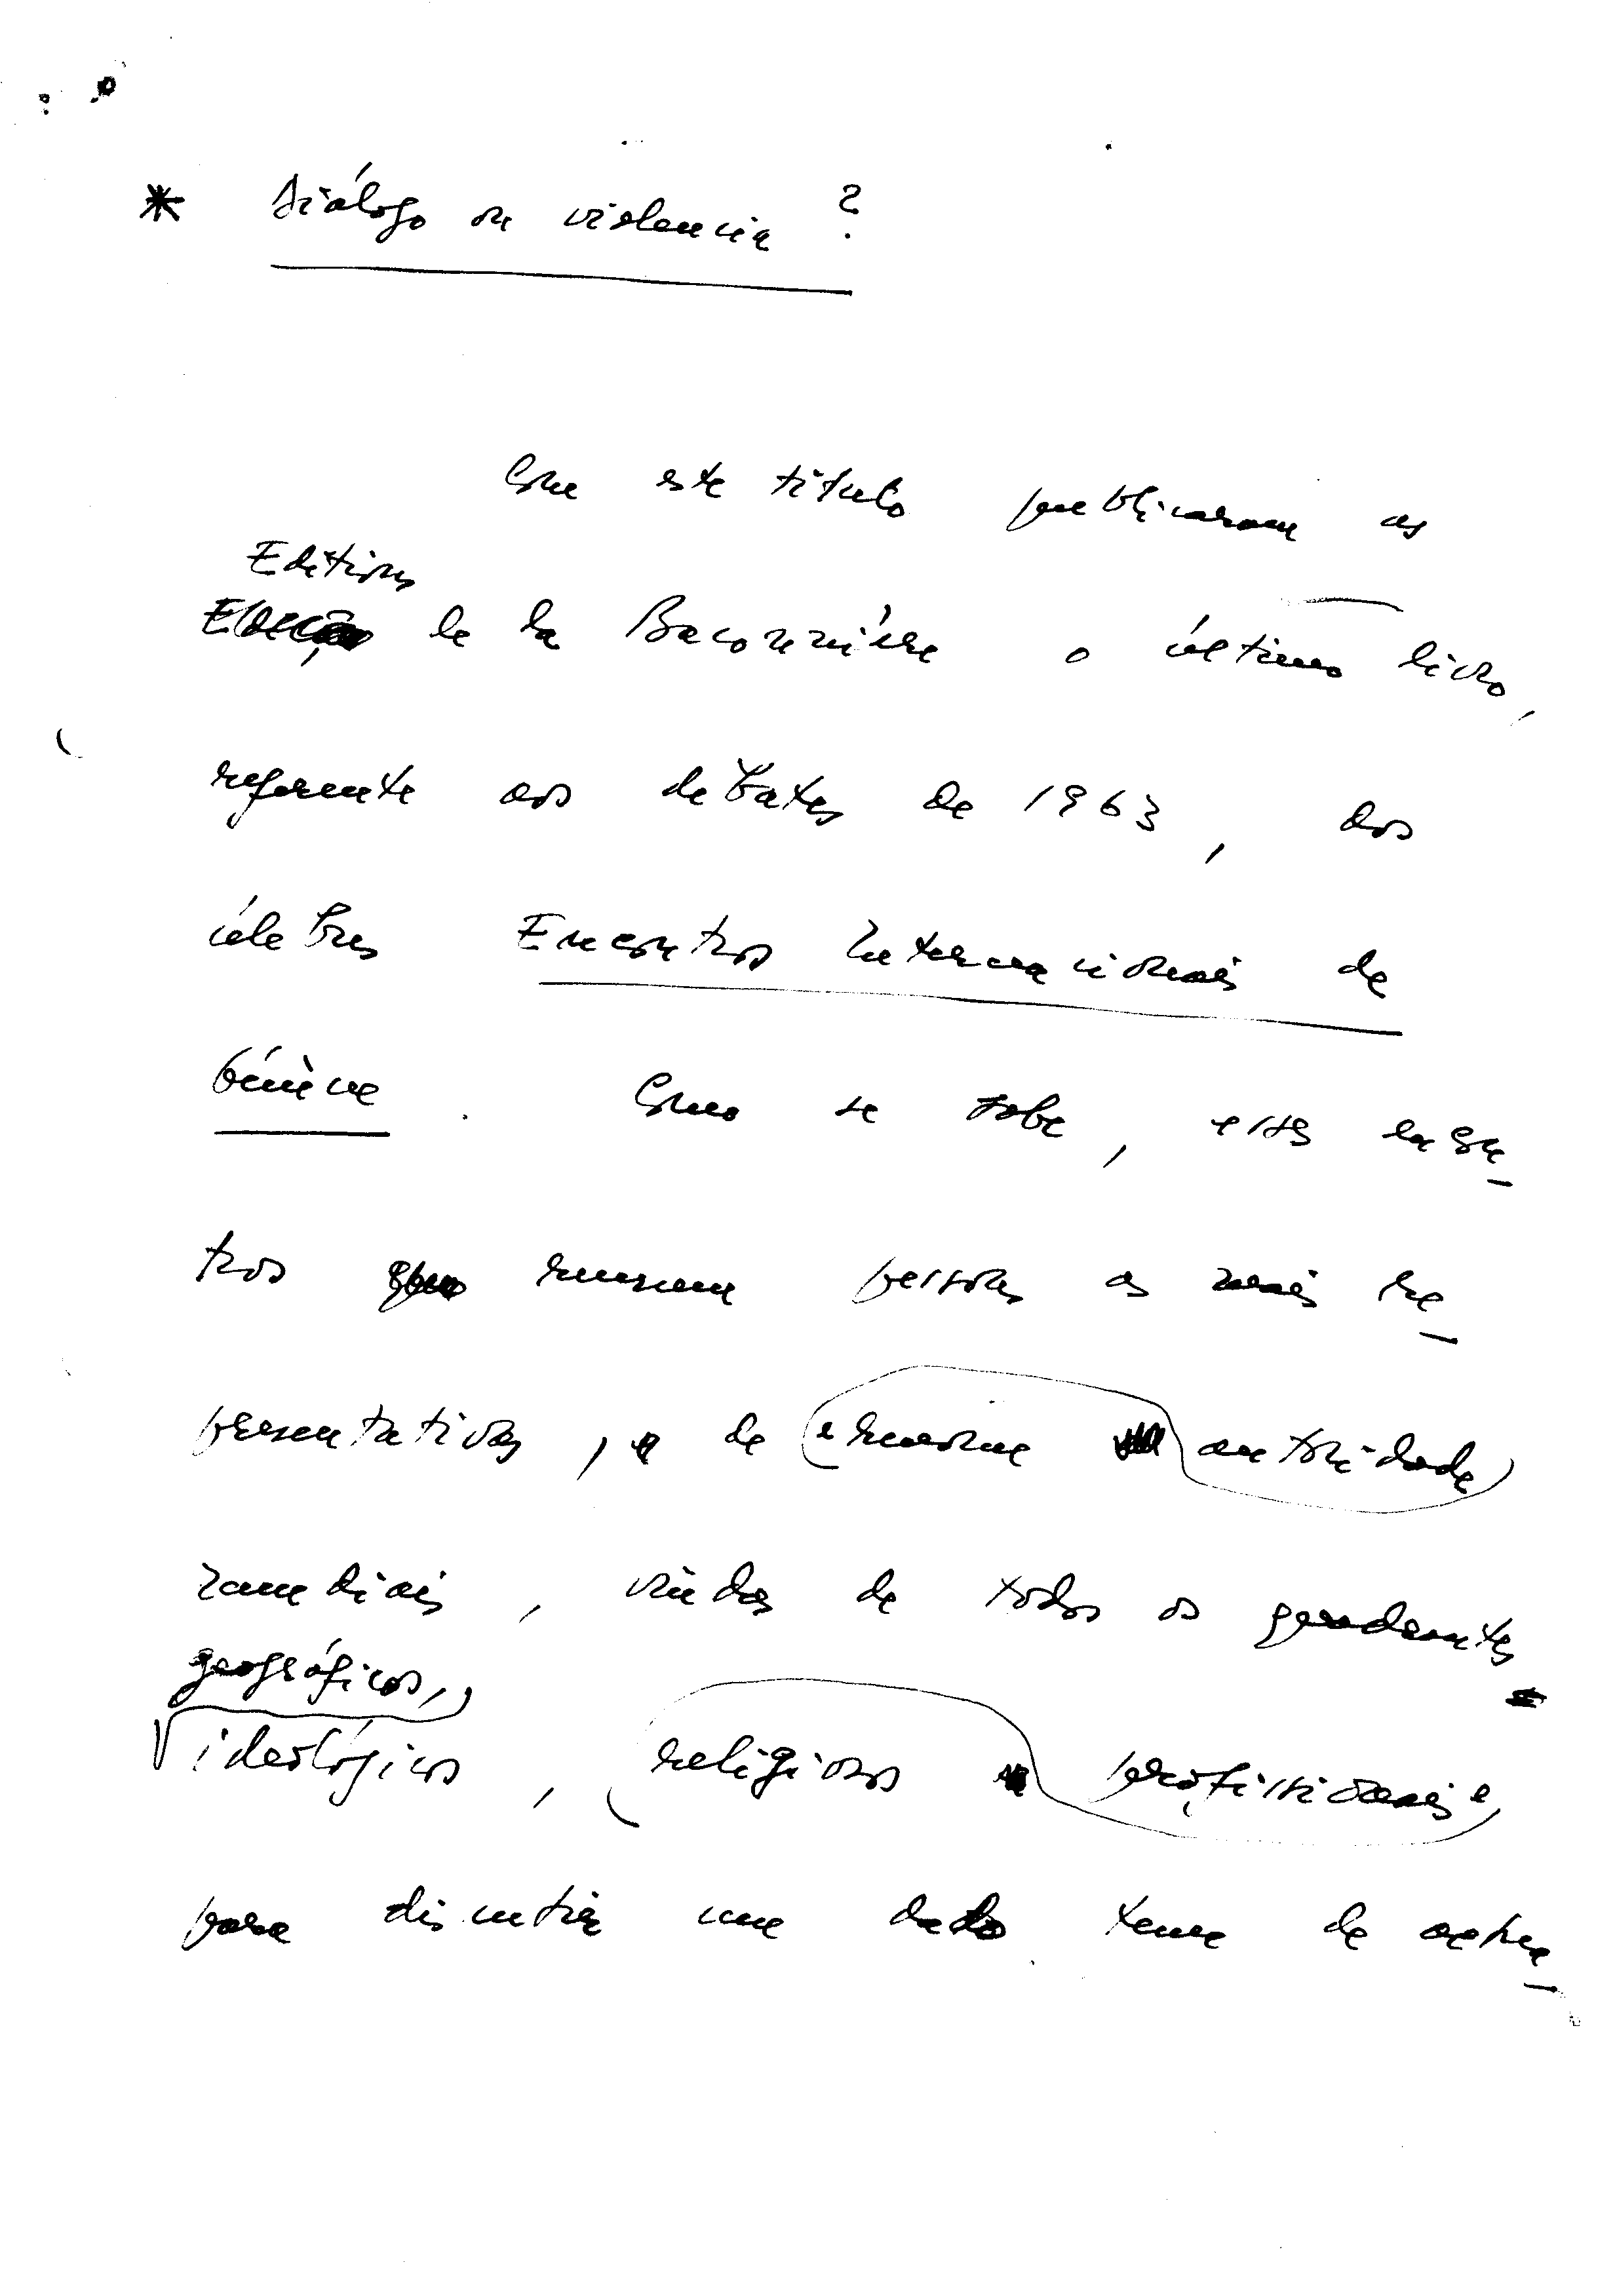 * Diálogo ou violencia ?
Com este título publicaram as
Editions
de la Baconnière o último livro,
referente aos debates de 1963, dos
célebres Encontros Internacionais de
Génève . Como se sabe, estes encon_
tros reunem pessoas as mais re_
presentativas, de autoridade
mundiais, vindas de todos os quadrantes
geográficos,
ideológicos, religiosos profissionais,
para discutir um dado tema de actua_